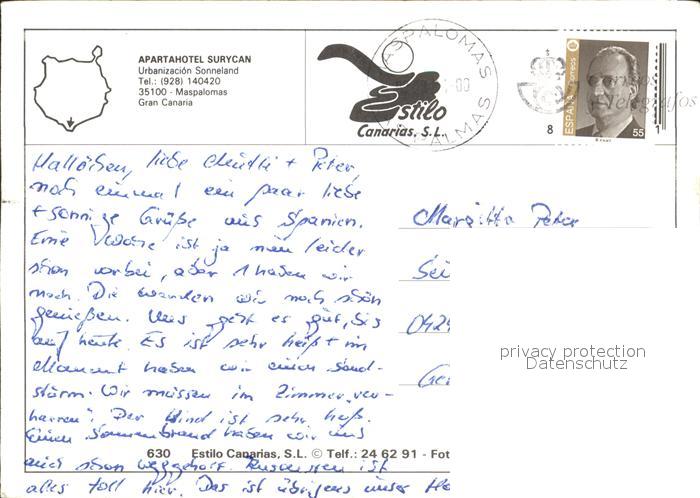 APARTAHOTEL SURYCAN
Urbanización Sonneland
Tel.: (928) 140420
35100 - Maspalomas
Gran Canaria
Estilo
Canarias, S.L.
ASPALOMAS
PALMAS
ESPAÑA
Correos
8
55
1
Correos
Telégrafos
Hallöchen, liebe Mutti + Peter,
noch einmal ein paar liebe
+ sonnige Grüße aus Spanien.
Eine Woche ist ja nun leider
schon vorbei, aber 1 haben wir
noch. Die werden wir noch schön
genießen. Uns geht es gut, bis
auf heute. Es ist sehr heiß + im
Moment haben wir einen Sand-
sturm. Wir müssen im Zimmer „ver-
harren“. Der Wind ist sehr heiß.
Einen Sonnenbrand haben wir uns
auch schon weggeholt. Ansonsten ist
alles toll hier. Das ist übrigens unser Ho
Margitta Peter
042
privacy protection
Datenschutz
630 Estilo Canarias, S.L. © Telf.: 24 62 91 - Fot